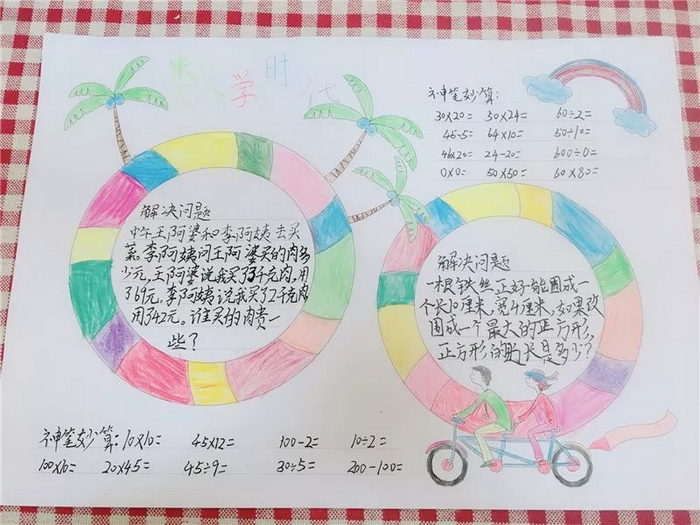 数学时代
神笔妙算:
30×20= 50×24= 60÷2=
45-5= 64×10= 50÷10=
46×20= 24-20= 600÷0=
0×0= 50×50= 60×80=
解决问题
中午王阿婆和李阿姨去买
菜。李阿姨问王阿婆买的肉多
少元,王阿婆说我买了3千克肉,用
了69元。李阿姨说我买了2千克肉
用了42元。谁买的肉贵一
些?
解决问题
一根铁丝正好能围成一
个长10厘米,宽4厘米,如果改
围成一个最大的正方形,
正方形的边长是多少?
神笔妙算:10×10= 45×12= 100-2= 10÷2=
100×10= 20×45= 45÷9= 30÷5= 200-100=